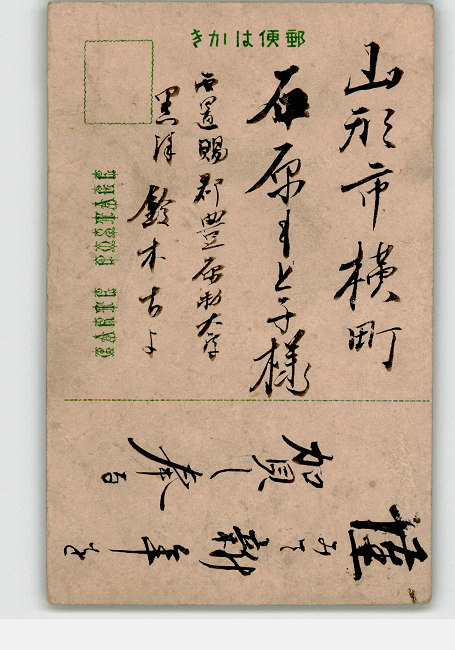 郵便はかき
山形市横町
石原もと子様
西置賜郡豊原村大字
黒澤 鈴木
CARTE POSTALE
謹みて新年を
賀し奉る